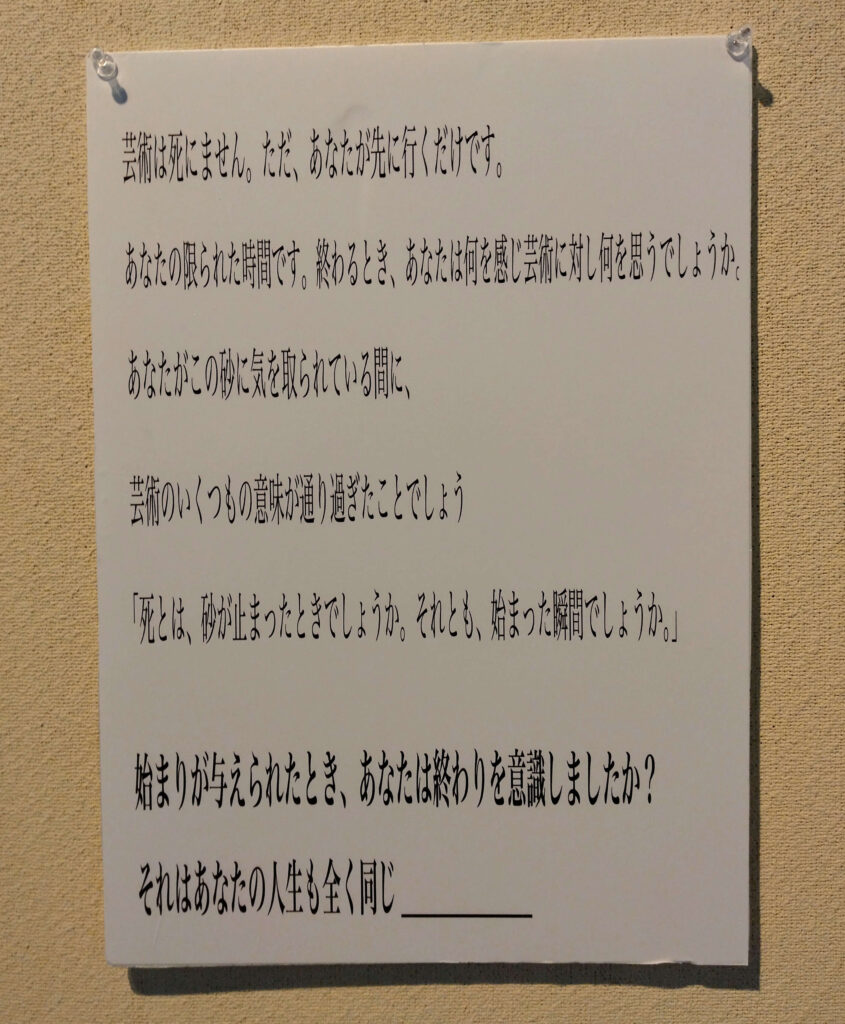 芸術は死にません。ただ、あなたが先に行くだけです。
あなたの限られた時間です。終わるとき、あなたは何を感じ芸術に対し何を思うでしょうか。
あなたがこの砂に気を取られている間に、
芸術のいくつもの意味が通り過ぎたことでしょう
「死とは、砂が止まったときでしょうか。それとも、始まった瞬間でしょうか。」
始まりが与えられたとき、あなたは終わりを意識しましたか？
それはあなたの人生も全く同じ＿＿＿＿